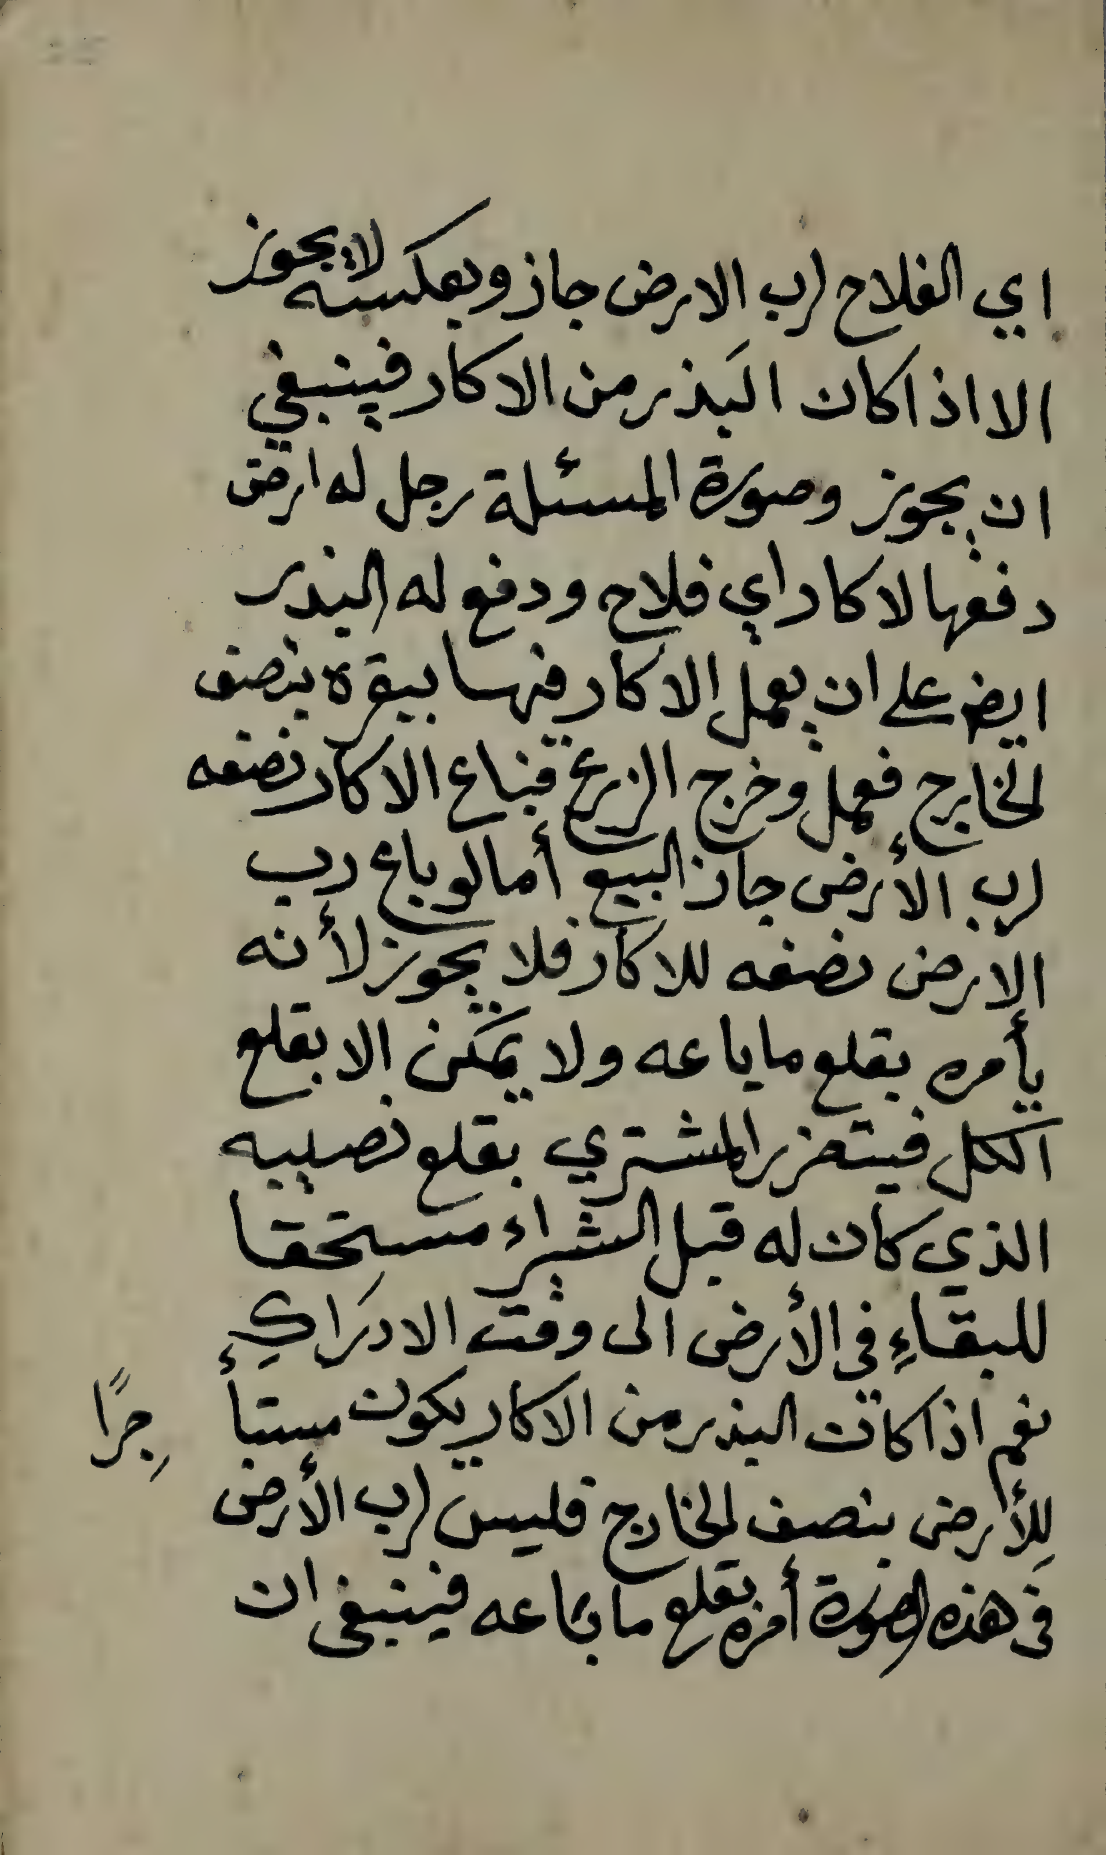 اي الفلاح لرب الارض جاز وبعكسه لا يجوز
الا اذا كان البذر من الاكار فينبغي
ان يجوز وصورة المسئلة رجل له ارض
دفعها لاكار اي فلاح ودفع له البذر
ايضا على ان يعمل الاكار فيها ببقره بنصف
الخارج فعمل وخرج الزرع فباع الاكار نصفه
لرب الأرض جاز البيع أما لو باع رب
الارض نصفه للاكار فلا يجوز لأنه
يأمره بقلع ما باعه ولا يمكن الا بقلع
الكل فيتضرر المشتري بقلع نصيبه
الذي كان له قبل الشراء مستحقا
للبقاءِ في الأرض الى وقت الادراكِ
نعم اذا كانت البذر من الاكار يكون مستأجرًا
لِلأرض بنصف الخارج فليس لرب الأرض
في هذه الصورة أمره بقلع ما باعه فينبغى ان